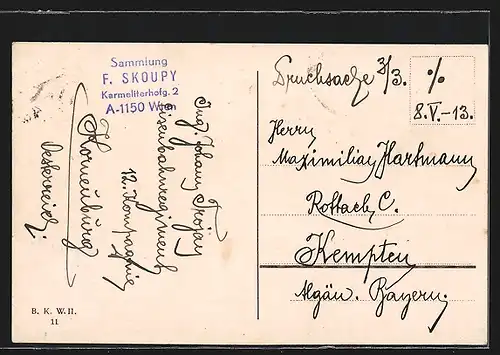 Sammlung
F. SKOUPY
Karmeliterhofg. 2
A-1150 Wien
Ing. Johann Trojan
Eisenbahnregiment
12. Kompagnie
Korneuburg
Oesterreich.
B. K. W. II.
11
Drucksache 3/3.
%
8.V.-13.
Herrn
Maximilian Hartmann
Rottach C.
Kempten
Algäu. Bayern.